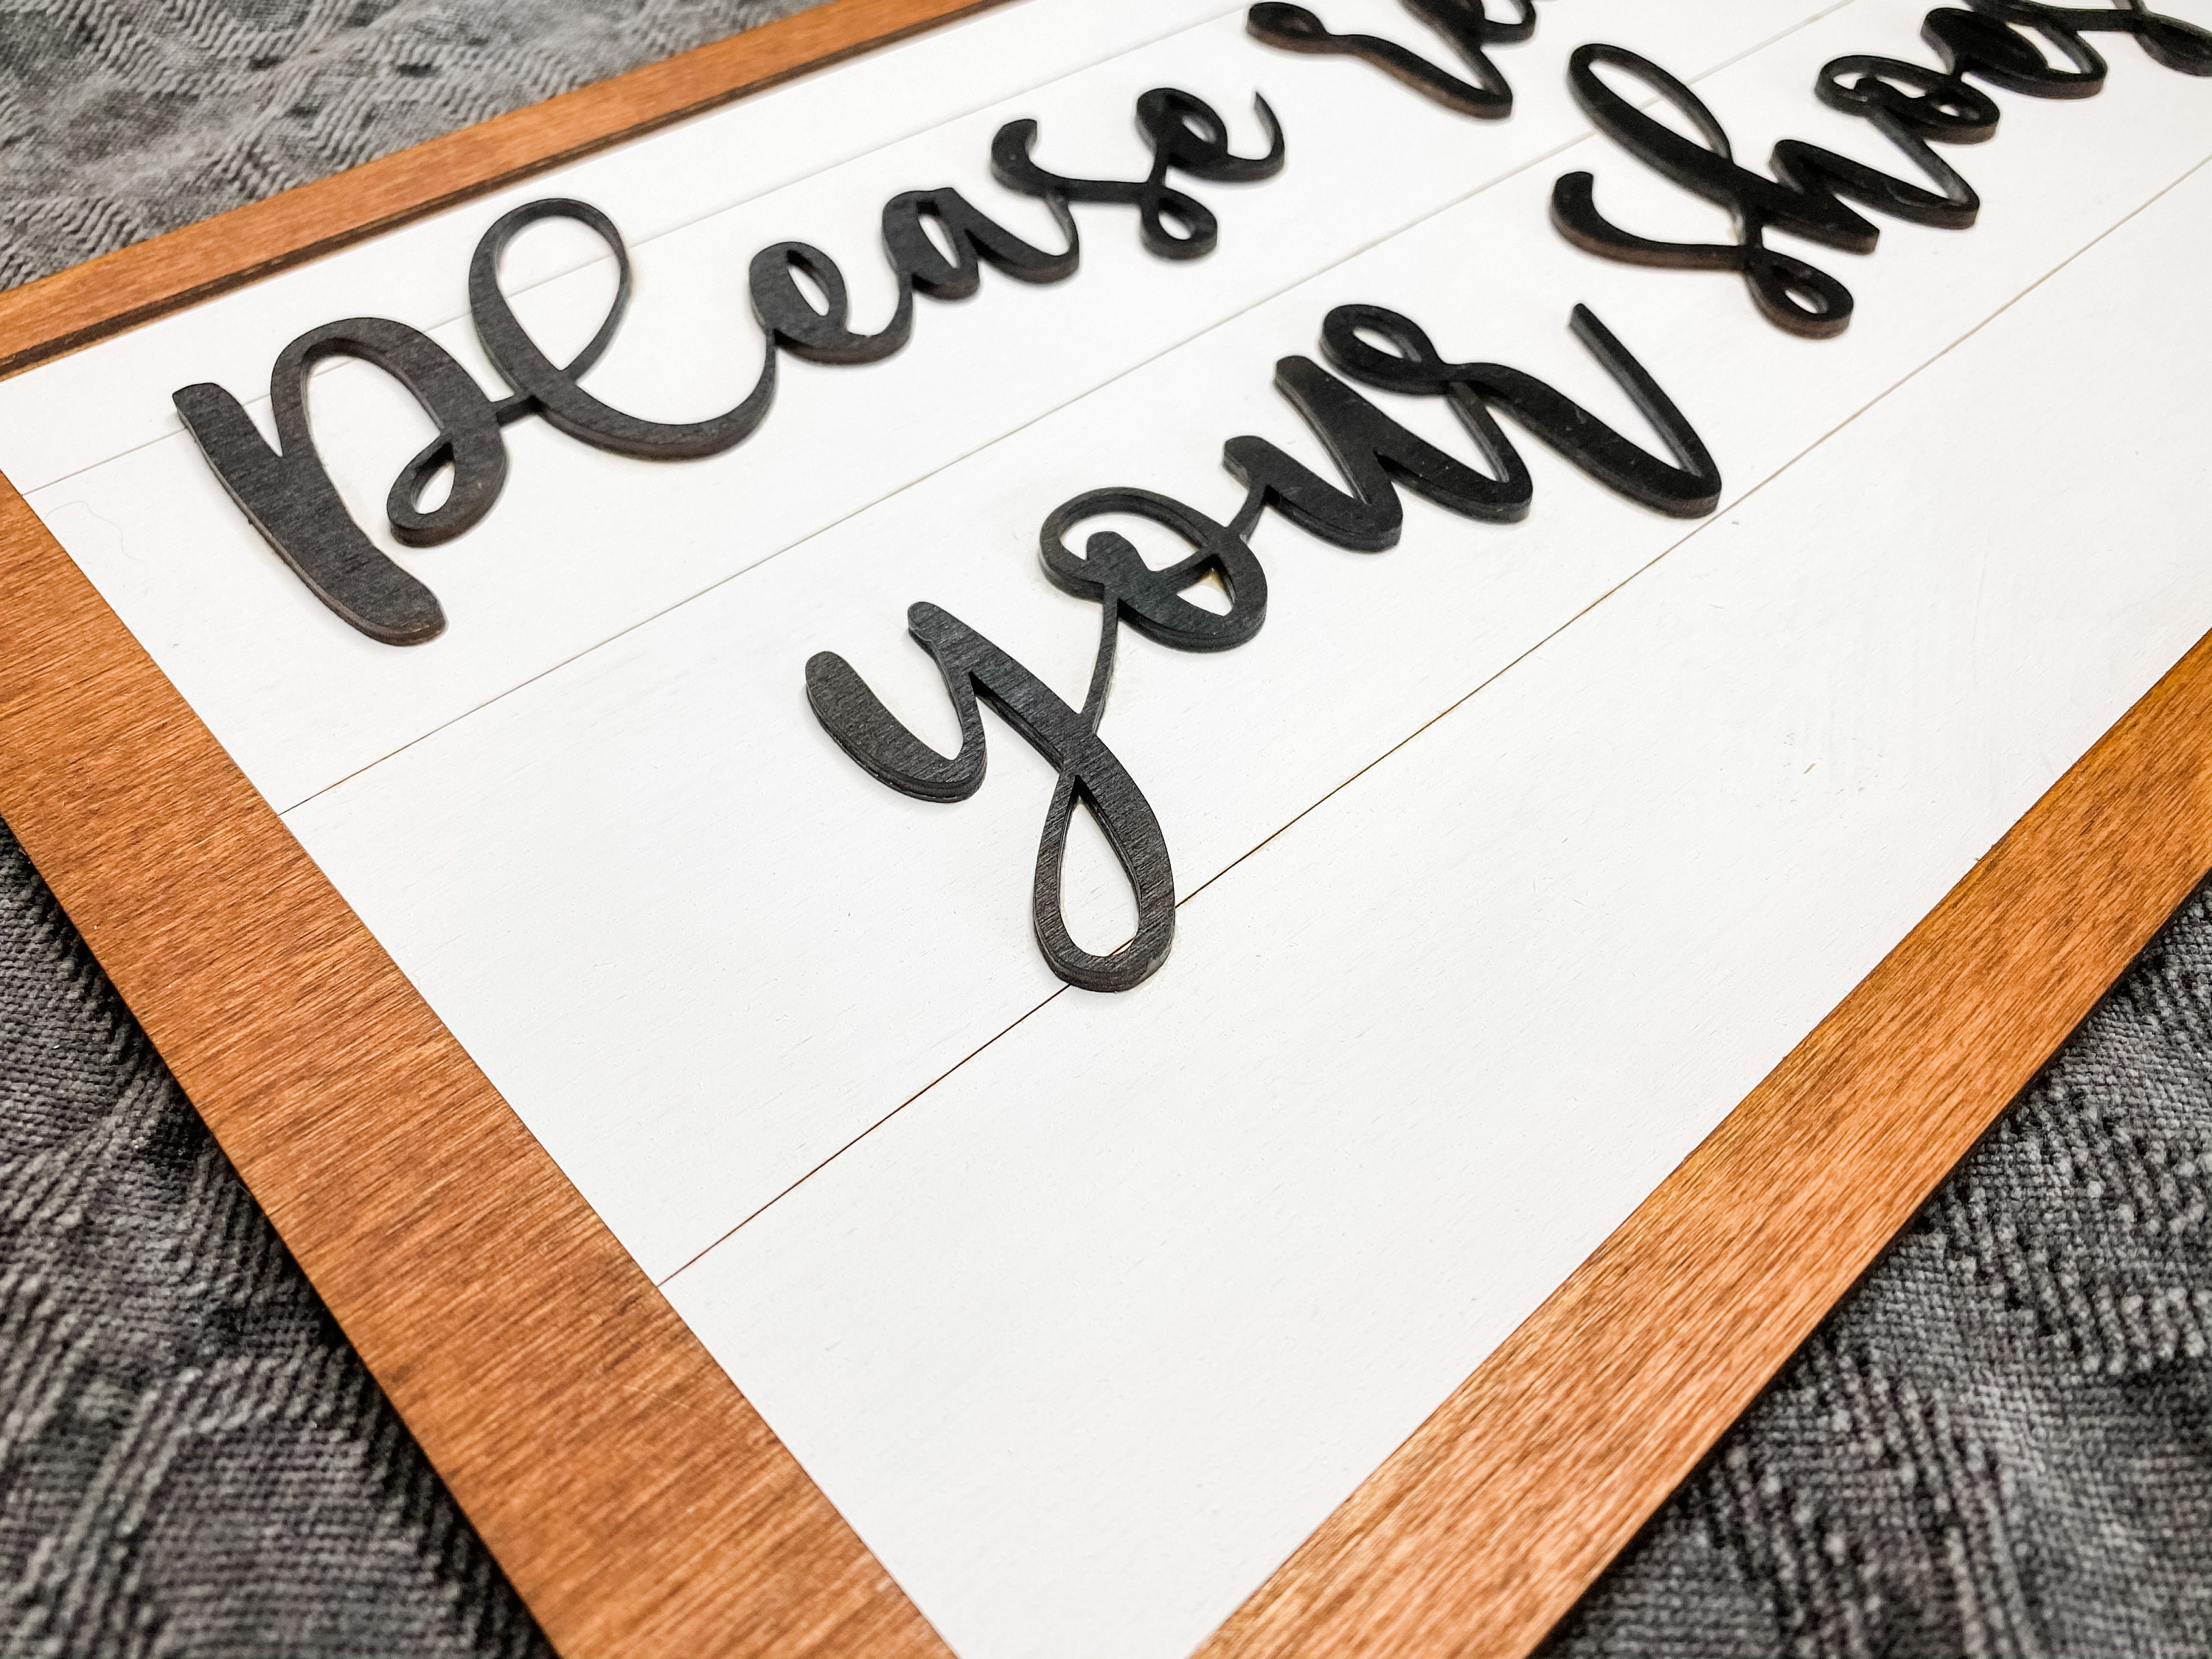 please
your shoes